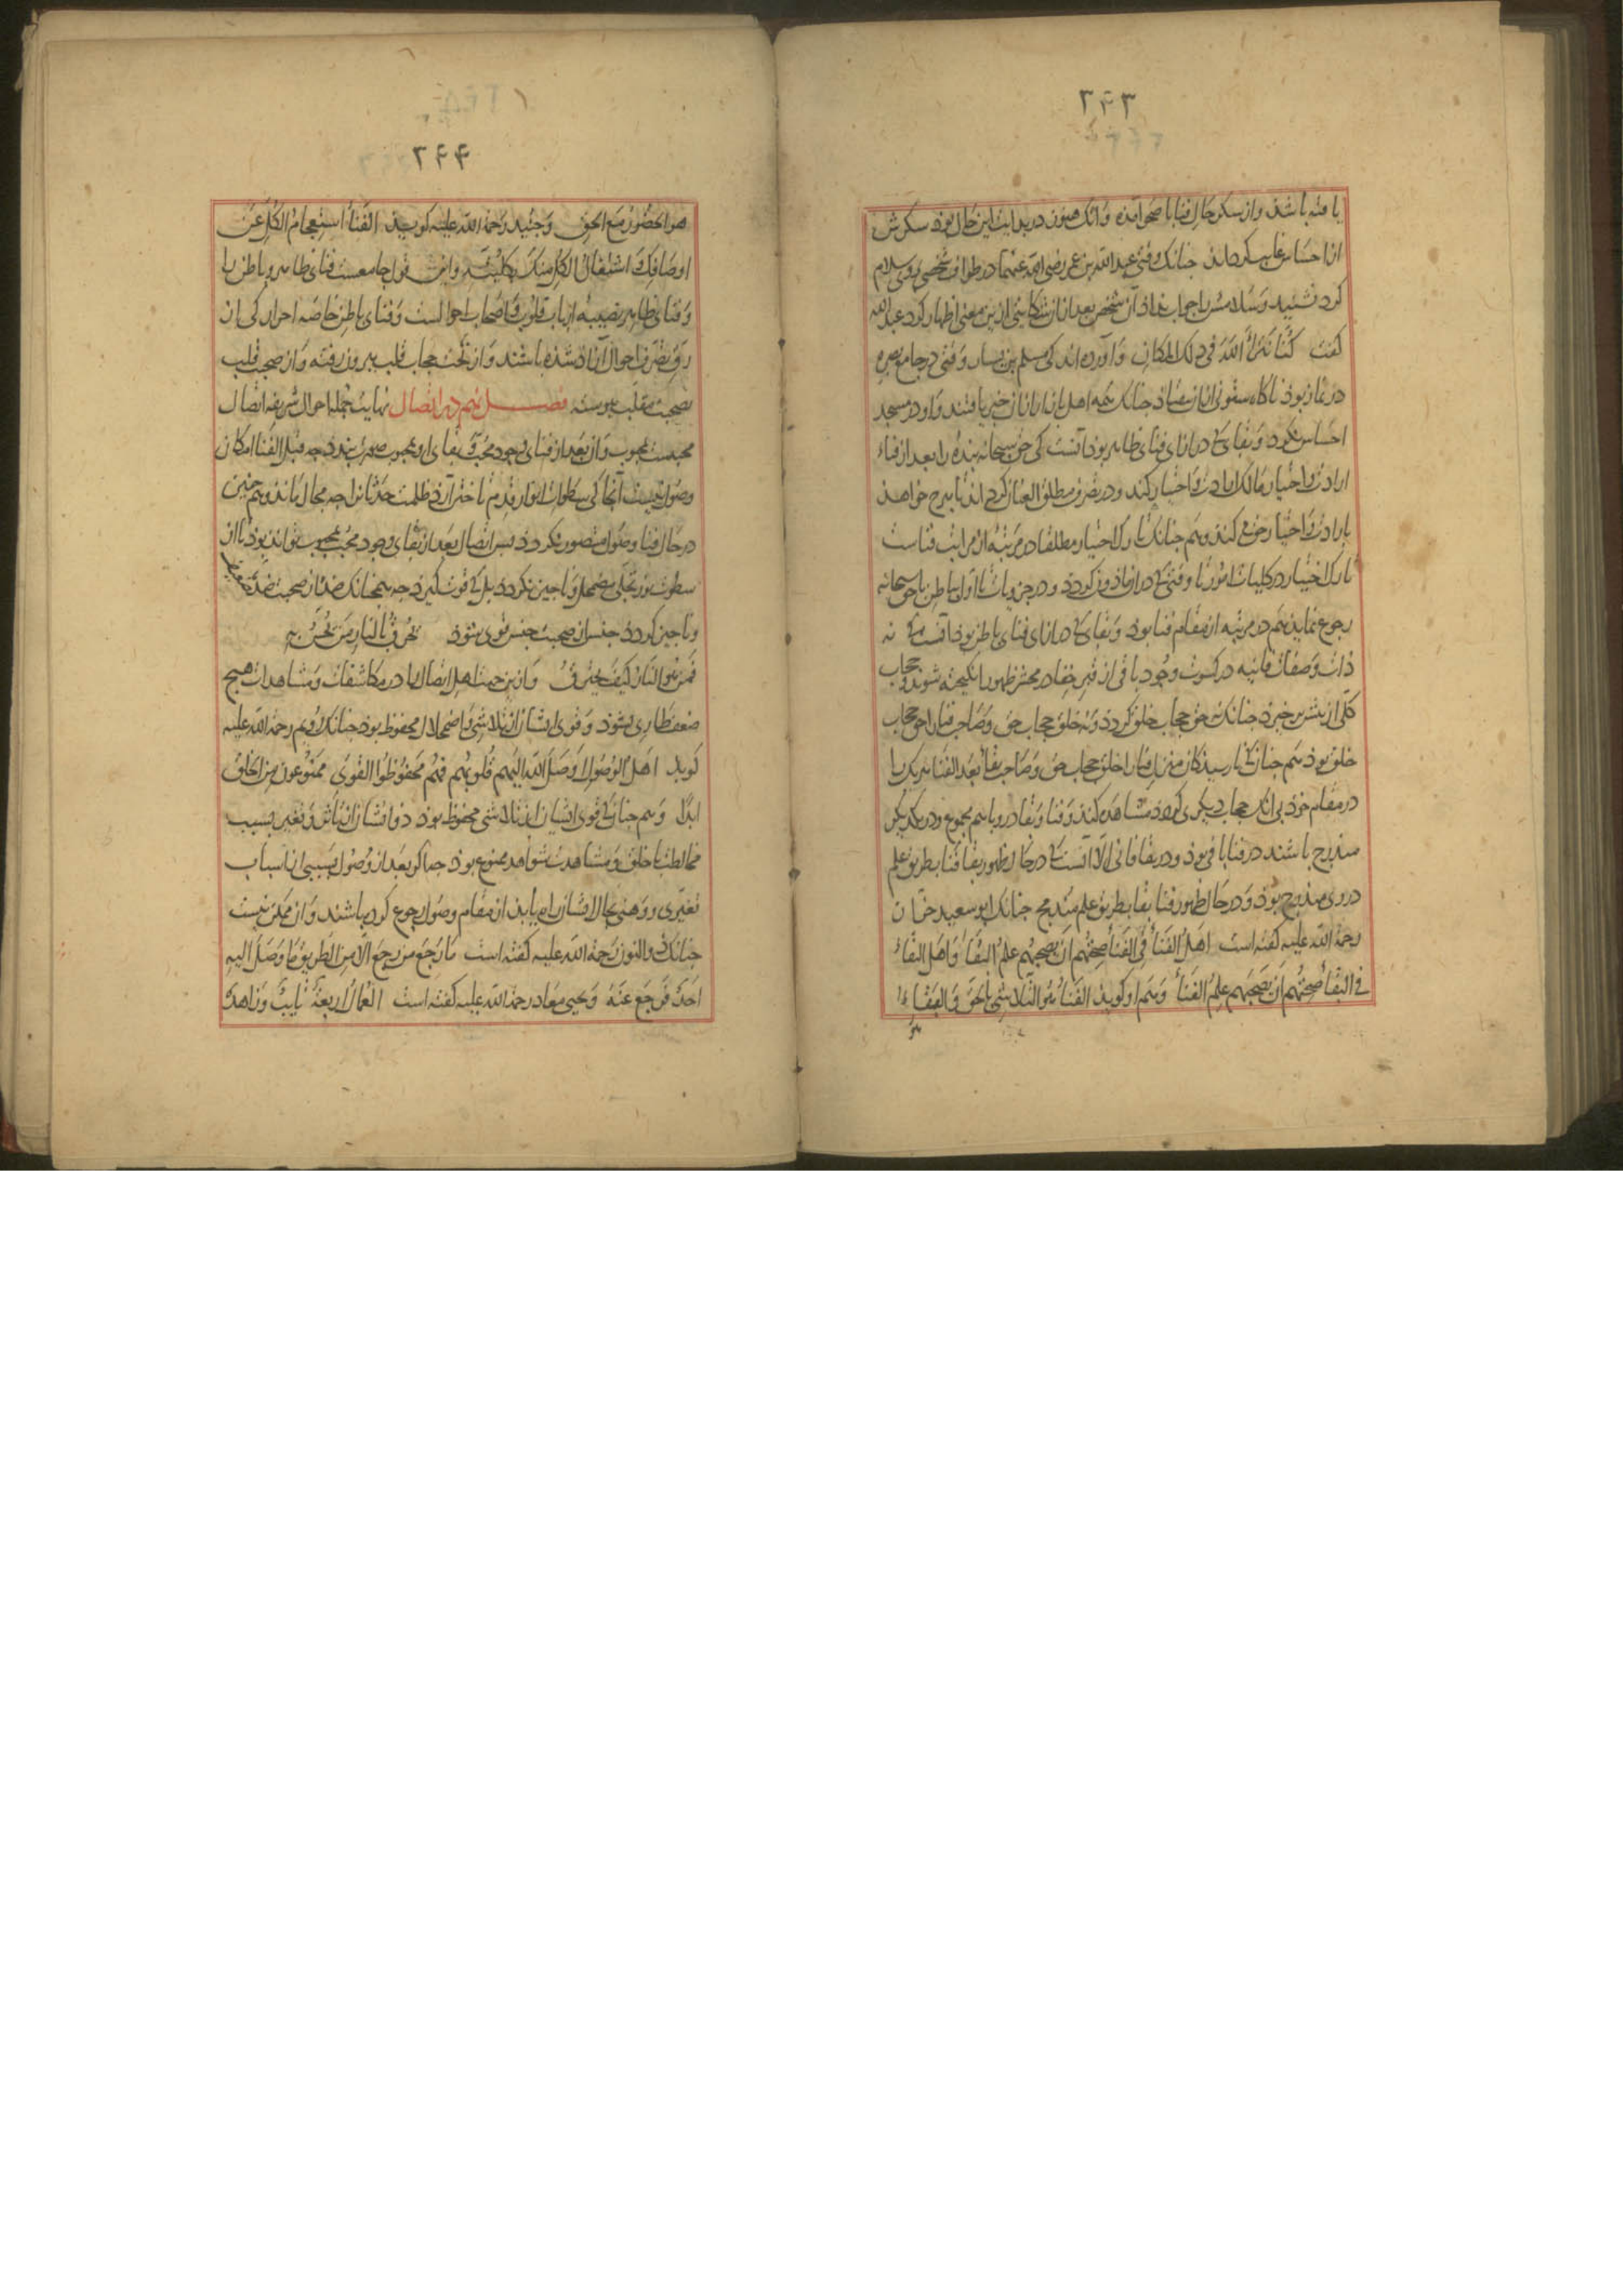 ۲۴۳
یافته باشد و از سکر حال فنا با صحو آمده و آنک هنوز در بدایت این حال بود سکرش
از احساس غایب گرداند چنانک وقتی عبدالله بن عمر رضی الله عنهما در طواف شخصی بر وی سلام
کرد نشنید و سلامش را جواب نداد آن شخص بعد از آن شکایتی ازین معنی اظهار کرد عبدالله
گفت کُنّا نَتَراءَی اللهَ فی ذلک المکان و آورده اند کی مسلم بن یسار وقتی در جامع بصره
در نماز بود ناگاه ستونی از آن بیفتاد چنانک همه اهل بازار از آن خبر یافتند و او در مسجد
احساس نکرد و بقای کی در ازای فنای ظاهر بود آنست کی حق سبحانه بنده را بعد از فناء
ارادت و اختیار مالک ارادت و اختیار کند و در تصرف مطلق العنان گرداند تا هرچ خواهد
بارادت و اختیار حق می کند و هم چنانک تارک اختیار مطلقا در مرتبه از مراتب فناست
تارک اختیار در کلیات امور تا وقتی کی در آن ماذون گردد و در جزویات تا اول بباطن با حق سبحانه
رجوع نماید هم در مرتبه از مقام فنا بود و بقای کی در ازای فنای باطن بود آنست کی نه
ذات و صفات فانیه در کسوت وجود باقی از قبر خفا در محشر ظهور انگیخته شوند و حجاب
کلی از پیش برخیزد چنانک نه حق حجاب خلق گردد و نه خلق حجاب حق و صاحب فنا را حق حجاب
خلق بود هم چنانک نارسیدگان منزل فنا را خلق حجاب حق و صاحب بقا بعد الفنا هر یک را
در مقام خود بی آنک حجاب دیگری گردد مشاهده کند و فنا و بقا در و باهم مجموع و در یکدیگر
مندرج باشند در فنا باقی بود و در بقا فانی الّا آنست کی در حال ظهور بقا فنا بطریق علم
در وی مندرج بود و در حال ظهور فنا بقا بطریق علم مندمج چنانک ابو سعید خراز
رحمة الله علیه گفته است اهل الفناء فی الفناء صحتهم ان یصحبهم علم البقاء و اهل البقاء
فی البقاء صحتهم ان یصحبهم علم الفناء و هم او گوید الفناء هو التلاشی بالحق و البقاء
هو
۲۴۴
هو الحضور مع الحق و جنید رحمة الله علیه گوید الفناء استعجام الکل عن
اوصافک و اشتغال الکل منک بکلیته و این قول جامعست فنای ظاهر و باطن را
و فنای ظاهر نصیبه ارباب قلوب و اصحاب احوالست و فنای باطن خاصه احرار کی از
رق تصرف احوال آزاد شده باشند و از تحت حجاب قلب بیرون رفته و از صحبت قلب
بصحبت مقلب پیوسته فصل نهم در اتصال نهایت جمله احوال شریفه اتصال
محبست بمحبوب و آن بعد از فنای وجود محب و بقای او بمحبوب صورت بندد چه قبل الفنا امکان
وصول نیست آنجا کی سطوات انوار قدم تاختن آرد ظلمت حدثان را چه مجال ماند و هم چنین
در حال فنا وصول متصور نگردد پس اتصال بعد از بقای وجود محب بمحبوب تواند بود تا از
سطوت نور تجلی مضمحل و ناچیز نگردد بل کی قوت گیرد چه همچنانک ضد از صحبت ضد مضمحل
و ناچیز گردد جنس از صحبت جنس قوی شود تحرق بالنار من یحس به
فمن هو النار کیف یحترق و ازین جهت اهل اتصال را در مکاشفات و مشاهدات هیچ
ضعف طاری نشود و قوی ایشان از تلاشی و اضمحلال محفوظ بود چنانک رویم رحمة الله علیه
گوید اهل الوصول اوصل الله الیهم قلوبهم فهم محفوظوا القوی ممنوعون من الخلق
ابدا و هم چنانک قوی ایشان از تلاشی محفظ بود ذوات ایشان از تاثر و تغیر بسبب
مخالطت با خلق و مشاهدت شواهد ممنوع بود چه اگر بعد از وصول بسببی از اسباب
تغیری و وهنی بحال ایشان راه یابد از مقام وصول رجوع کرده باشند و آن ممکن نیست
چنانک ذوالنون رحمة الله علیه گفته است ما رجع من رجع الا من الطریق ما وصل الیه
احد فرجع عنه و یحیی معاذ رحمة الله علیه گفته است العمال اربعة تایب و زاهد